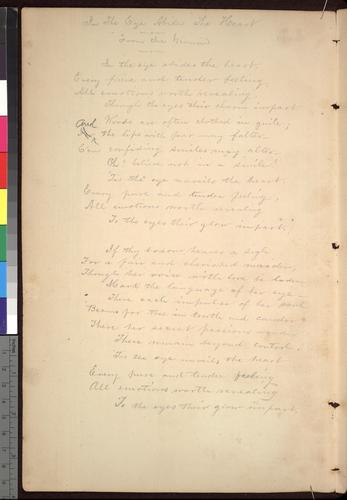 In The Eye Abides The Heart
From the German
In the eye abides the heart,
Every pure and tender feeling,
All emotions worth revealing
Though the eyes their charm impart
And Words are often clothed in guile;
the lips with fear may falter,
E'en confiding smiles may alter,
Oh! believe not in a smile!
'Tis the eye unveils the heart.
Every pure and tender feeling,
All emotions worth revealing
To the eyes their glow impart."
If thy bosom heaves a sigh
For a fair and cherished maiden,
Though her voice with love be laden
Mark the language of her eye—
There each impulse of her soul
Beams for thee in truth and candor
There her secret passions
There remain beyond control.
'Tis the eye unveils the heart
Every pure and tender feeling
All emotions worth revealing
To the eyes their glow impart.